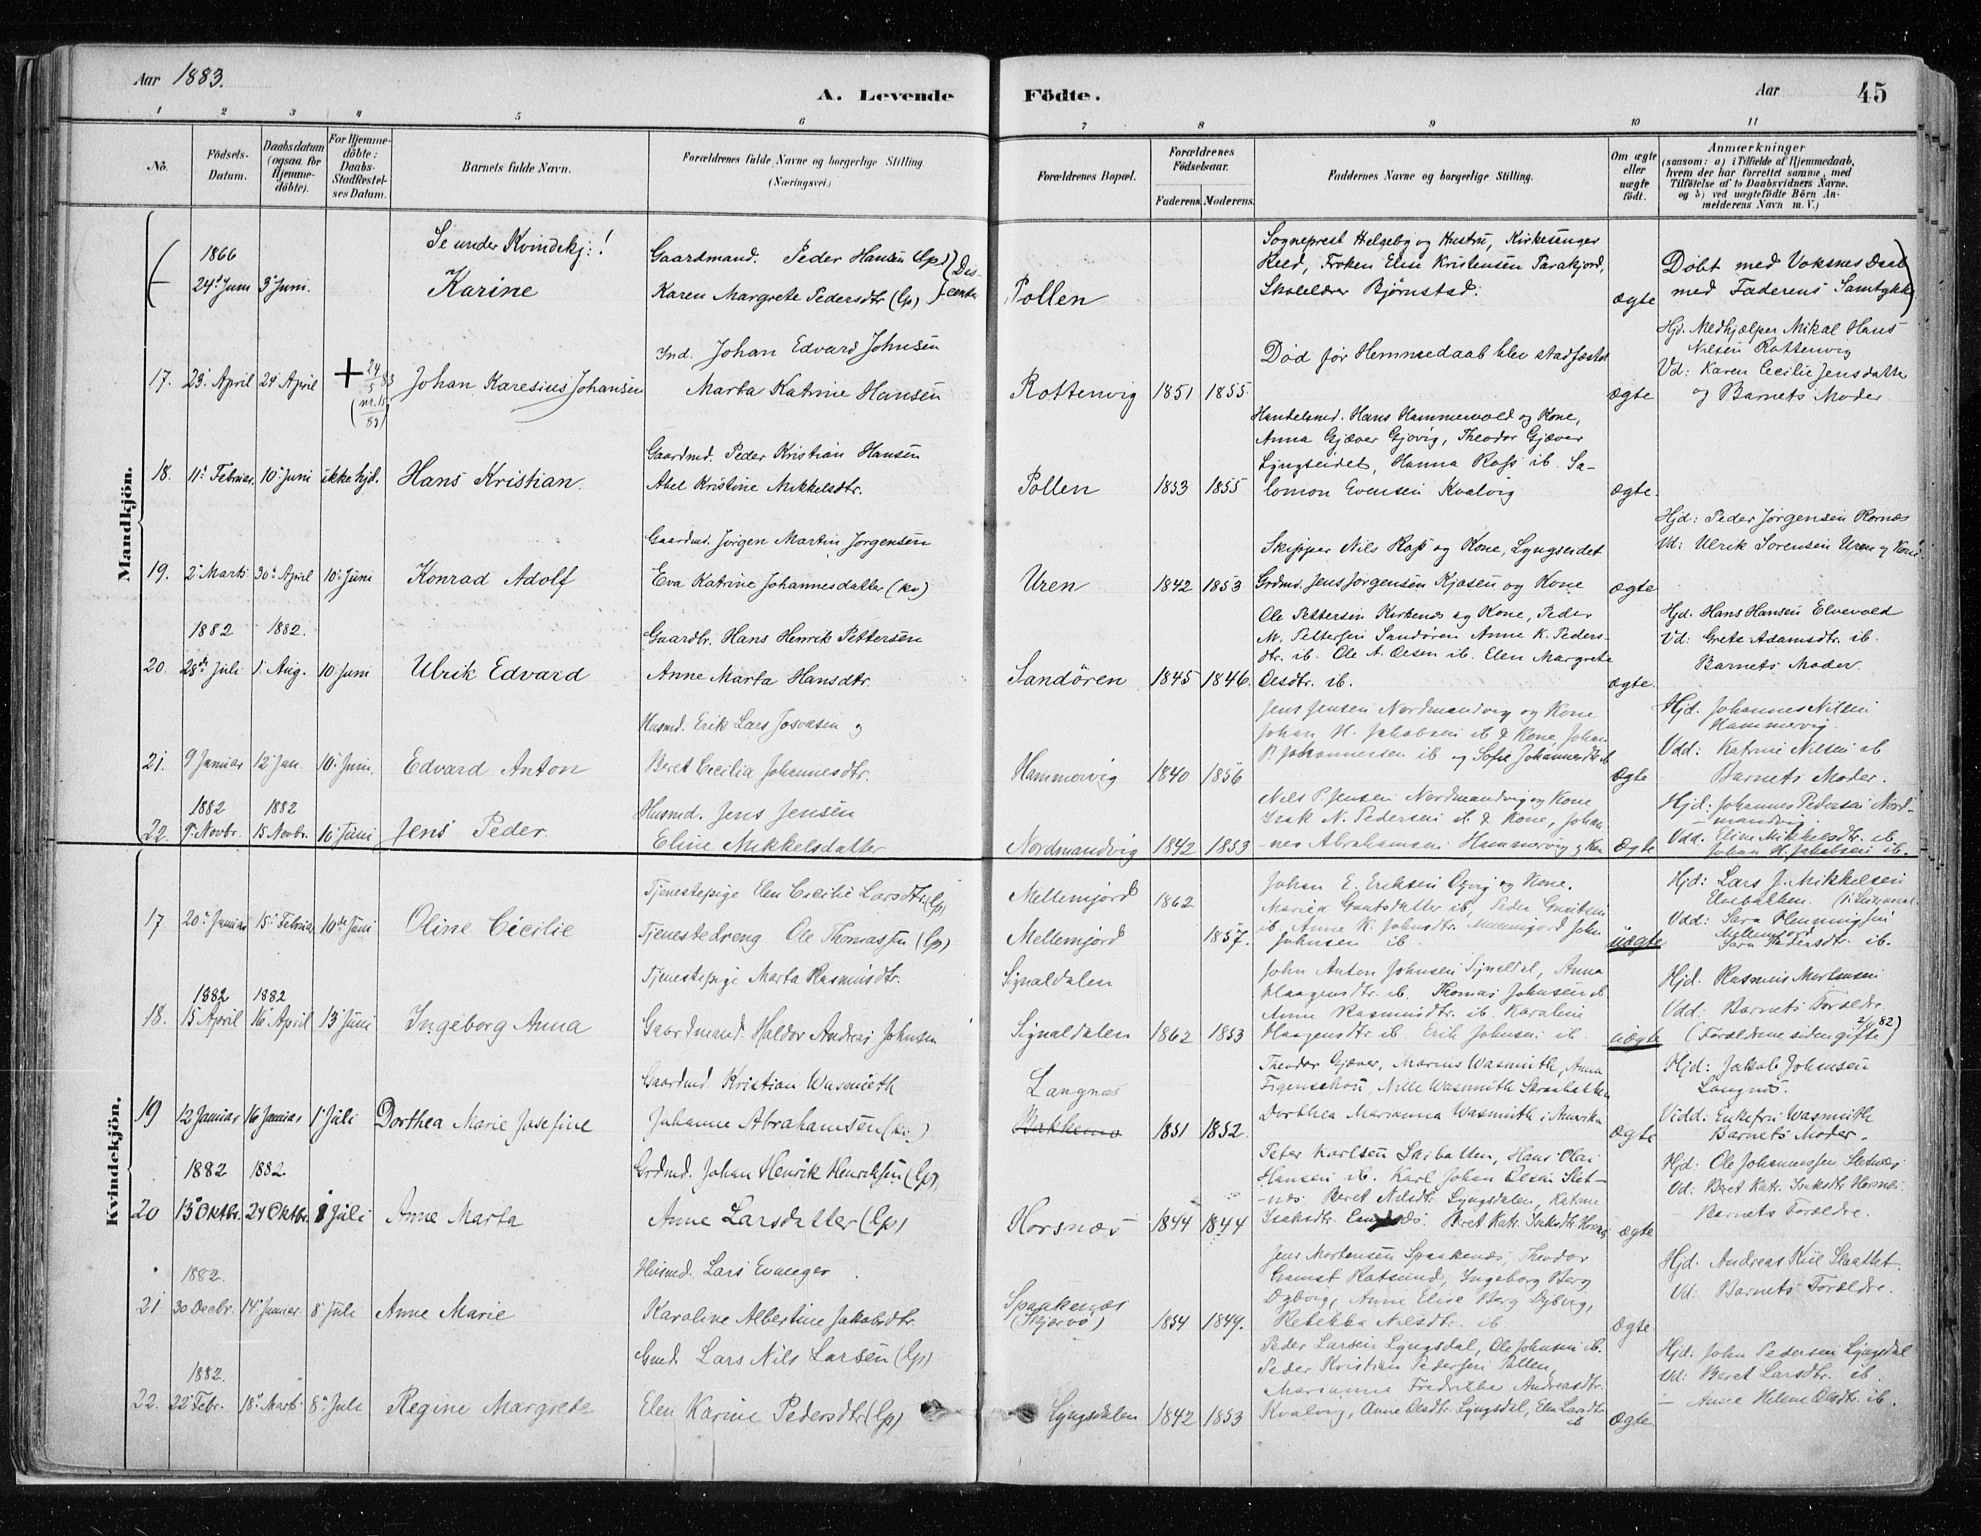 Aar 1883.
A. Levende
Födte.
Aar
45
1 2 3 4 5 6 7 8 9 10 11
No.
Födsels-
Datum.
Daabsdatum
(ogsaa for
Hjemme-
döbte).
For Hjemme-
döbte:
Daabs-
Stadfæstel-
ses Datum.
Barnets fulde Navn.
Forældrenes fulde Navne og borgerlige Stilling.
(Næringsvei.)
Forældrenes Bopæl.
Forældrenes
Födselsaar.
Faderens. Moderens.
Faddernes Navne og borgerlige Stilling.
Om ægte
eller
uægte
födt.
Anmærkninger
(saasom: a) i Tilfælde af Hjemmedaab,
hvem der har forrettet samme, med
Tilföielse af to Daabsvidners Navne,
og b) ved uægtefödte Börn An-
melderens Navn m. V.)
Mandkjön.
1866
24de Juni 3de Juni.
Se under Kvindekj:!
Karine
Gaardmand. Peder Hansen (lp)
Karen Margrete Pedersdtr (lp)
Dis-
center
Pollen
Sogneprest Helgeby og Hustru, Kirkesanger
Reld, Frøken Elise Kristensen Parakjord,
Skolelærer Bjørnstad.
ægte
Døbt med Voksnes Daab
med Faderens Samtykke
17. 23. April 24 April
24/5 83
(nr. 15/83)
Johan Karesius Johansen
Ind. Johan Edvard Johnsen
Marta Katrine Hansen
Rottenvig 1851 1855
Død før Hemmedaab blev stadfæstet
ægte
Hjd. Medhjælper Mikal Hans
Nilsen Rottenvig
Vd: Karen Cecilie Jensdatter
og Barnets Moder
18. 11. Februar. 10. Juni ikke hjd.
Hans Kristian.
Gaardmd. Peder Kristian Hansen
Abel Kristine Mikkelsdtr.
Pollen 1853 1855
Handelsmd. Hans Hammervold og Kone,
Anna Gjæver Gjøvig, Theodor Gjæver
Lyngseidet, Hanna Rofs ib. Sa-
lomon Evensen Kvalvig
ægte.
19. 2. Marts 30. April 10. Juni
Konrad Adolf
Gaardmd. Jørgen Martin Jørgensen
Eva Katrine Johannesdatter (kv)
Uren 1842 1853
Skipper Nils Rofs og Kone, Lyngseidet
Grdmd. Jens Jørgensen Kjosen og Kone
ægte
Hjd: Peder Jørgensen Rornæs
Vd: Ulrik Sørensen Uren og Kone
1882 1882.
20. 28de Juli 1. Aug. 10 Juni
Ulrik Edvard
Gaardbr. Hans Henrik Pettersen
Anne Marta Hansdtr.
Sandören 1845 1846.
Ole Pettersen Kirkenæs og Kone, Peder
M. Pettersen Sandören Anne K. Peders-
dtr. ib. Ole A. Olsen ib. Elen Margrete
Olsdtr. ib.
ægte.
Hjd. Hans Hansen Elvevold
Vd: Grete Adamsdtr. ib.
Barnets Moder.
21. 9 Januar 12 Jan. 10. Juni.
Edvard Anton
Husmd. Erik Lars Josvasen og
Beret Cecilia Johannesdtr.
Hammervig 1840 1856
Jens Jensen Nordmandvig og Kone
Johan H. Jakobsen ib & Kone, Johan
P. Johannessen ib og Sofie Johannesdtr ib
ægte
Hjd. Johannes Nilsen
Hammervig.
Vdd: Katrine Nilsen ib
Barnets Moder.
1882 1882
22. 9. Novbr. 15 Novbr. 10 Juni
Jens Peder.
Husmd. Jens Jensen
Eline Mikkelsdatter
Nordmandvig 1842 1853
Nils P. Jensen Nordmandvig og Kone
Isak N. Pedersen ib & Kone, Johan
-nes Abrahamsen Hammervig og Kon
Ægte
Hjd: Johannes Pedersen Nord-
mandvig.
Vdd. Eline Mikkelsdtr. ib.
Johan H. Jakobsen ib.
Kvindekjön.
17 20. Januar 15. Februar 10de Juni
Oline Cecilie
Tjenestepige Elen Cecilie Larsdtr. (lp)
Tjenestedreng Ole Thomassen (lp)
Mellemjord 1862
Mellemjord 1857.
Johan E. Eriksen og Kone.
ib. Anne K. Johnsdtr. Mellemjord John
Johnsen ib.
uægte
Hjd: Lars J. Mikkelsen
Elvebakken.
Vdd: Sara Henningsen
Mellemjord
Sara Pedersdtr. ib.
1882 1882
18. 15 April 16 April 13 Juni
Ingeborg Anna
Tjenestepige Marta Rasmusdtr.
Gaardmand. Haldor Andreas Johnsen
Signaldalen
Signaldalen 1862 1853
John Anton Johnsen Signeldal, Anna
Haagensdtr. ib. Thomas Johnsen ib
Anne Rasmusdtr. ib. Karoline
Haagensdtr ib. Erik Johnsen ib.
uægte
Hjd. Rasmus Mortensen
Vdd: Barnets Forældre.
(Forældrene siden gifte)
19 12 Januar 16 Januar 1. Juli
Dorthea Marie Josefine
Gaardmd. Kristian Wasmuth
Johanne Abrahamsen (kv)
Langnæs
Bakkemo 1851 1852.
Theodor Gjæver, Marius Wasmuth, Anna
Figenschou, Nille Wasmuth Skraabakken
Dorthea Marianna Wasmuth i Amerika
ægte
Hjd: Jakob Johnsen
Langnes.
Vidd. Enkefru Wasmuth
Barnets Moder.
1882 1882
20 13. Oktbr. 24 Oktbr. 8 Juli
Anne Marta
Grdmd. Johan Henrik Henriksen (lp)
Anne Larsdatter (lp)
Horsnæs 1844 1844
Peter Karlsen Skibotten, Hans Olai
Hansen ib. Karl Johan Olsen Slet-
-næs Beret Nilsdtr. Lyngsdalen, Katrine
Isaksdtr. Beret Katr. Isaksdtr Horsnæs
ægte
Hjd: Ole Johannssen Sletnæs
Vd: Beret Katr. Isaksdtr. Horsnæs
Barnets Forældre.
1882.
21 30 Decbr. 14. Januar. 8. Juli
Anne Marie
Husmd. Lars Evanger.
Karoline Albertine Jakobsdtr.
Spaakenæs
(Skjervø) 1854 1849.
Jens Mortensen Spaakenæs, Theodor
Gamst Havsund, Ingeborg Berg
Dybvig, Anne Elise Berg Dybvig,
Rebekka Nilsdtr. ib
ægte
Hjd. Andreas Kiil Slaattet
Vd: Barnets Forældre.
1882.
22. 22. Febr. 18. Marts 8. Juli
Regine Margrete
Grmd. Lars Nils Larsen (lp)
Elen Karine Pedersdtr (lp)
Lyngsdalen 1842 1853
Peder Larsen Lyngsdal, Ole Johnsen ib.
Peder Kristian Pedersen Pollen,
Marianna Fredrikke Andreasdtr.
Kvalvig, Anne Olsdtr. Lyngsdal, Elen Larsdtr
ib
ægte
Hjd: John Pedersen Lyngsdal
Vd: Beret Larsdtr. ib.
— Anne Helene Olsdtr. ib.